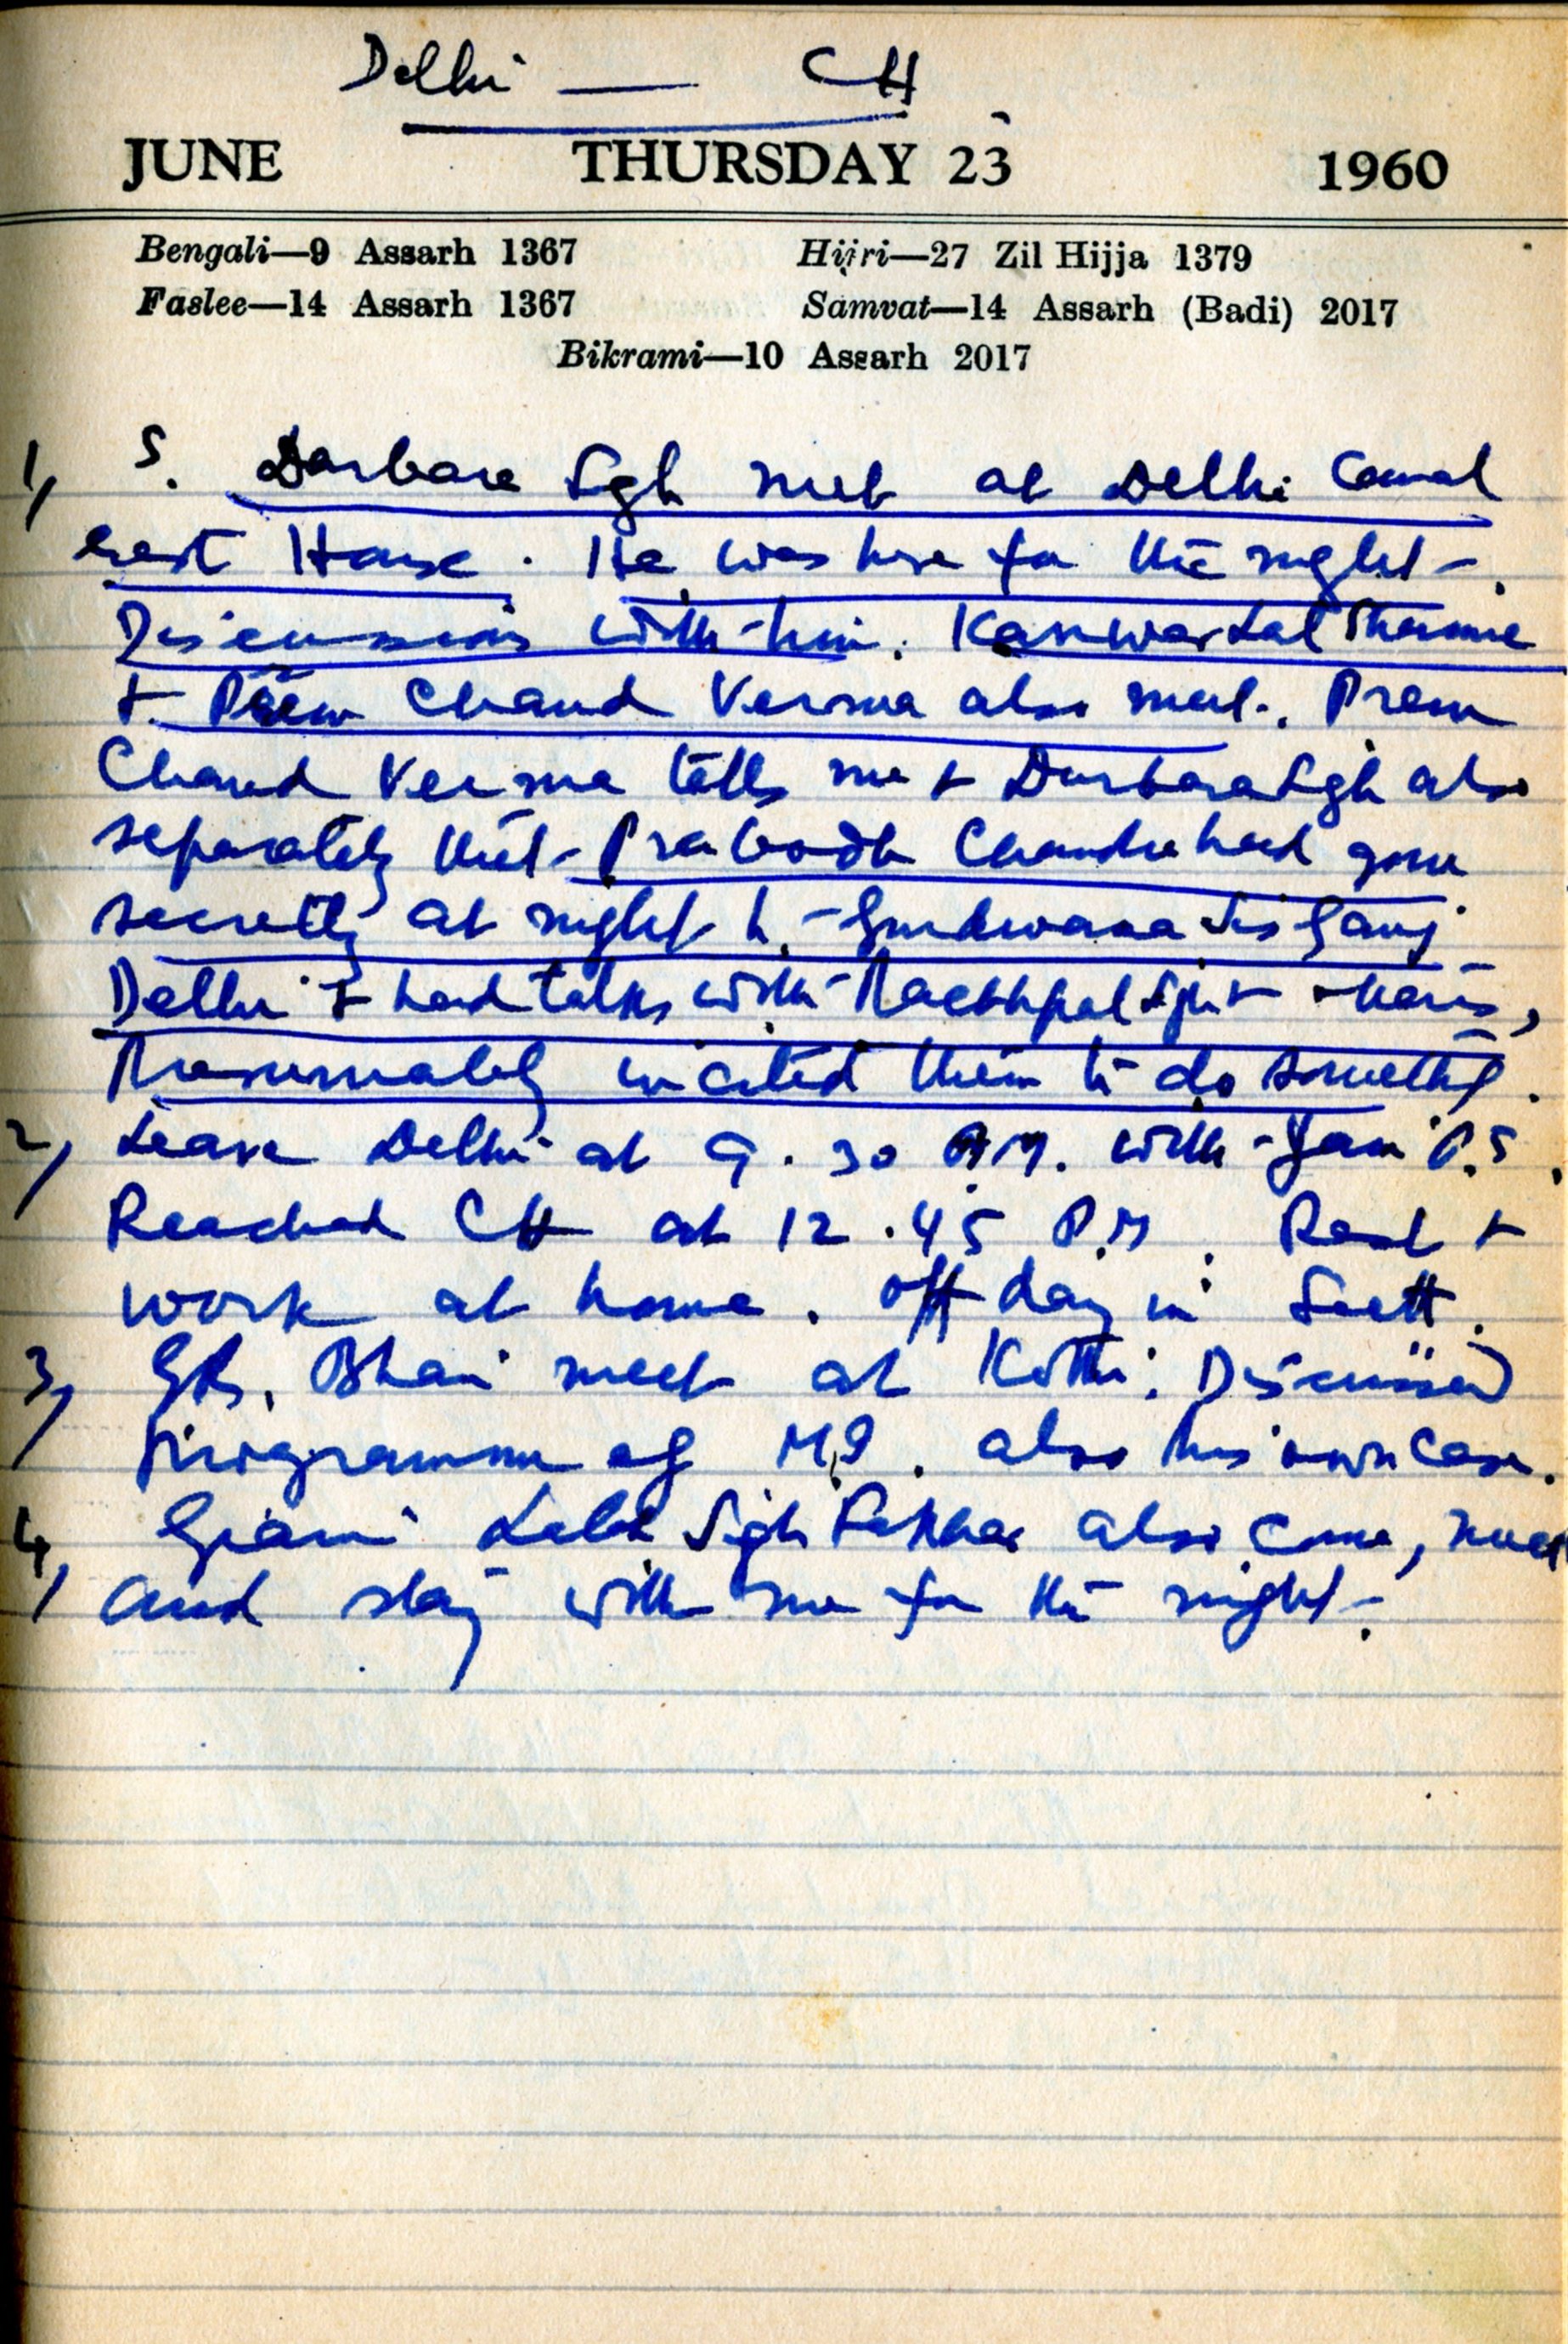 Delhi — CH
JUNE THURSDAY 23 1960
Bengali—9 Assarh 1367 Hijri—27 Zil Hijja 1379
Faslee—14 Assarh 1367 Samvat—14 Assarh (Badi) 2017
Bikrami—10 Assarh 2017
1, S. Darbara Sgh met at Delhi Canal
rest House. He was here for the night.
Discussions with him. Kanwar Lal Sharma
+ Prem Chand Verma also met. Prem
Chand Verma tells me + Darbara Sgh also
separately that Prabodh Chandra had gone
secretly at night to Gurdwara Sis Ganj
Delhi + had talks with Rachhpal Sgh + others,
Presumably incited them to do something.
2, Leave Delhi at 9.30 A.M. with P.S.
Reached CH at 12.45 P.M. Rest +
work at home. Off day in Sectt.
3, GR. Bhai meet at Kothi. Discussed
programme of M.I. also his own case.
4, Giani Labh Sigh Fakhar also come, meet
and stay with me for the night.